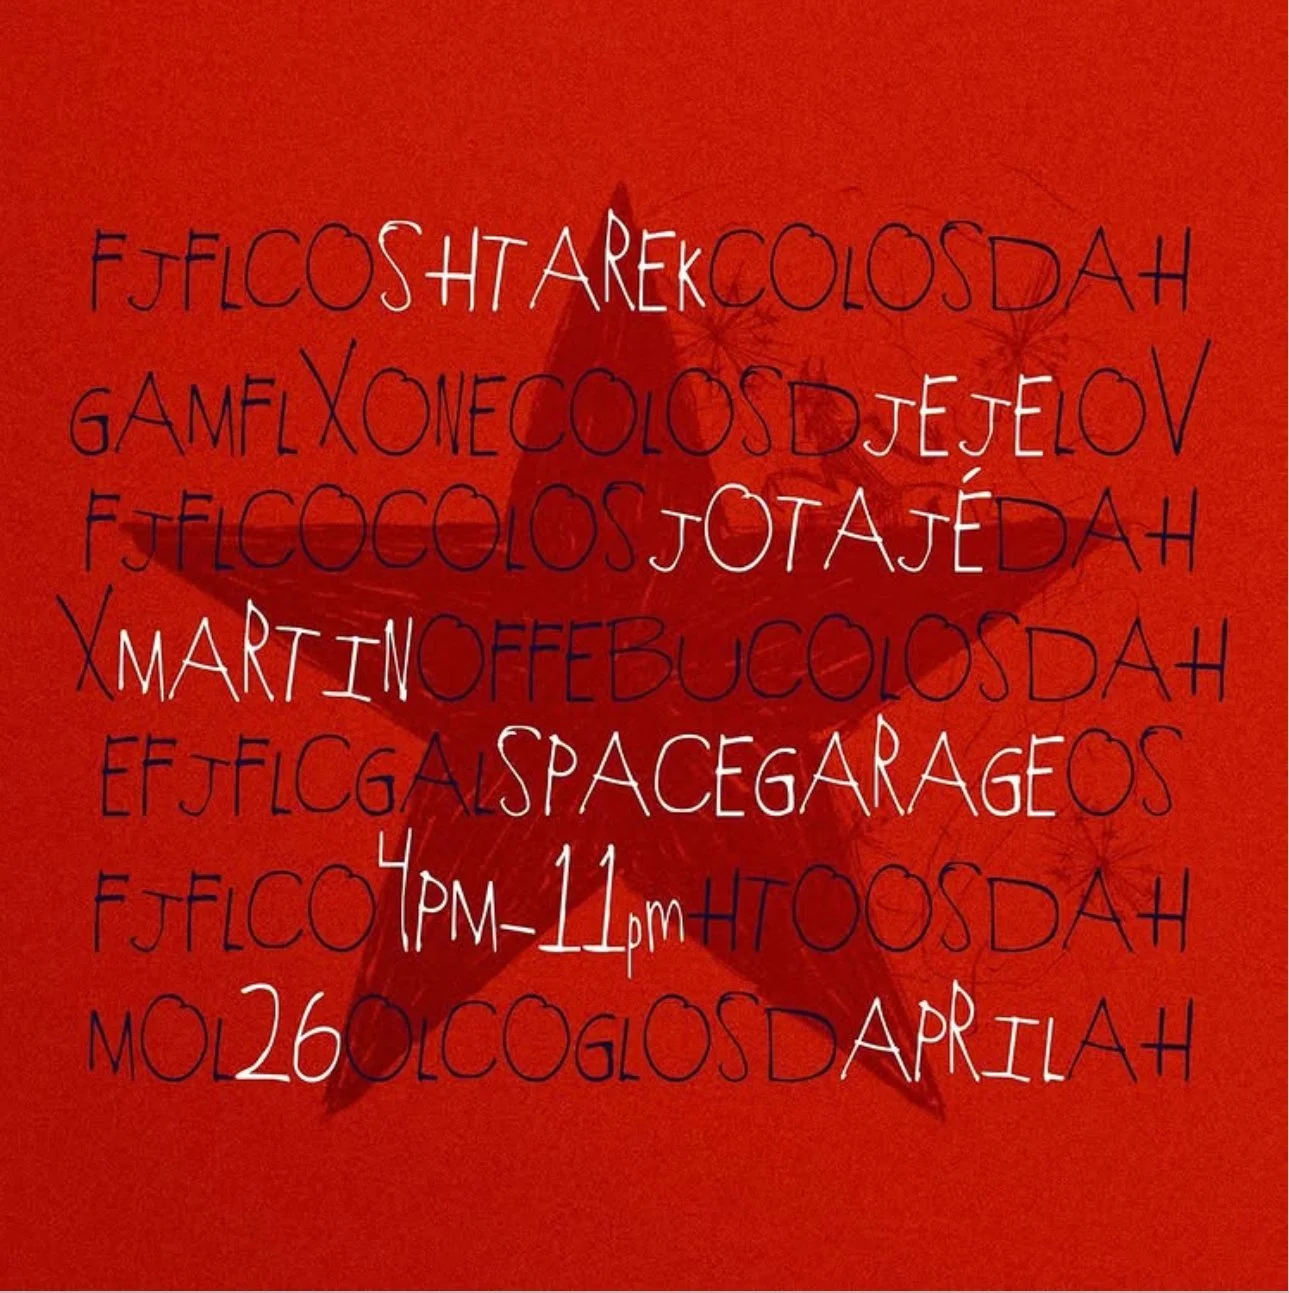 FJFLCOSHTAREKCOLOSDAH
GAMFLXONECOLOSDJEJELOV
FJFLCOCOLOSJOTAJÉDAH
XMARTINOFFEBUCOLOSDAH
EFJFLCGALSPACEGARAGEOS
FJFLCO4PM-11pmHTOOSDAH
MOL26OLCOGLOSDAPRILAH